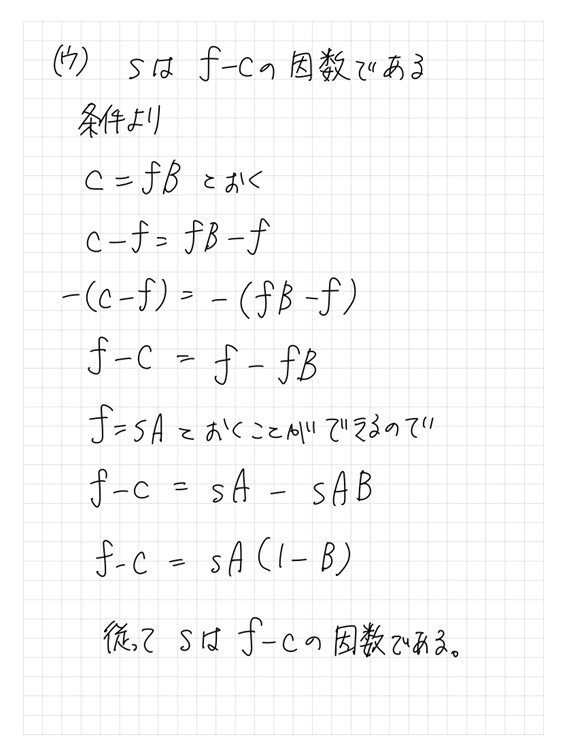 (ウ) sは f-cの因数である
条件より
c = fB とおく
c-f = fB-f
-(c-f) = -(fB-f)
f-c = f-fB
f=sAとおくことができるので
f-c = sA - sAB
f-c = sA(1-B)
従って sは f-cの因数である。